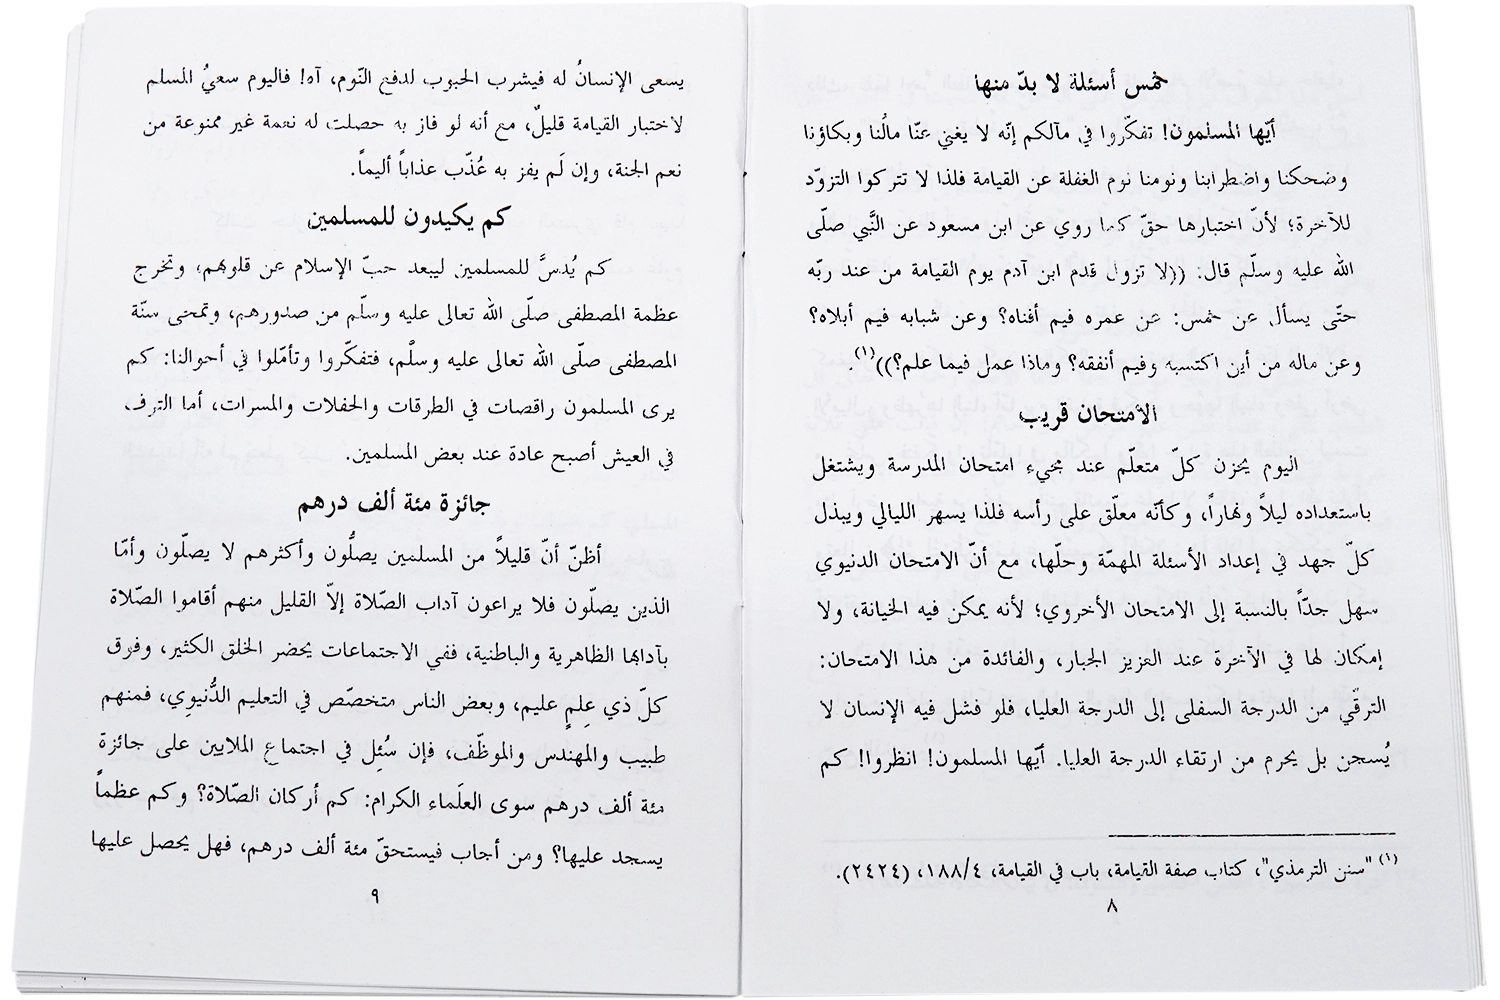 خمس أسئلة لا بدّ منها
أيّها المسلمون! تفكّروا في مآلكم إنّه لا يغني عنّا مالُنا وبكاؤنا
وضحكنا واضطرابنا ونومنا نوم الغفلة عن القيامة فلذا لا تتركوا التزوّد
للآخرة؛ لأنّ اختبارها حقّ كما روي عن ابن مسعود عن النَّبي صلّى
الله عليه وسلّم قال: ((لا تزول قدم ابن آدم يوم القيامة من عند ربّه
حتّى يسأل عن خمس: عن عمره فيم أفناه؟ وعن شبابه فيم أبلاه؟
وعن ماله من أين اكتسبه وفيم أنفقه؟ وماذا عمل فيما علم؟))(١).
الامتحان قريب
اليوم يحزن كلّ متعلّم عند مجيء امتحان المدرسة ويشتغل
باستعداده ليلاً ونهاراً، وكأنّه معلّق على رأسه فلذا يسهر الليالي ويبذل
كلّ جهد في إعداد الأسئلة المهمّة وحلّها، مع أنّ الامتحان الدنيوي
سهل جدّاً بالنسبة إلى الامتحان الأخروي؛ لأنه يمكن فيه الخيانة، ولا
إمكان لها في الآخرة عند العزيز الجبار، والفائدة من هذا الامتحان:
الترقّي من الدرجة السفلى إلى الدرجة العليا، فلو فشل فيه الإنسان لا
يُسجن بل يحرم من ارتقاء الدرجة العليا. أيّها المسلمون! انظروا! كم
(١) "سنن الترمذي"، كتاب صفة القيامة، باب في القيامة، ١٨٨/٤، (٢٤٢٤).
٨
يسعى الإنسانُ له فيشرب الحبوب لدفع النّوم، آه! فاليوم سعيُ المسلم
لاختبار القيامة قليلٌ، مع أنه لو فاز به حصلت له نعمة غير ممنوعة من
نعم الجنة، وإن لَم يفز به عُذّب عذاباً أليماً.
كم يكيدون للمسلمين
كم يُدسَّ للمسلمين ليبعد حبّ الإسلام عن قلوبهم، وتخرج
عظمة المصطفى صلّى الله تعالى عليه وسلّم من صدورهم، وتمحى سنّة
المصطفى صلّى الله تعالى عليه وسلَّم، فتفكّروا وتأمّلوا في أحوالنا: كم
يرى المسلمون راقصات في الطرقات والحفلات والمسرات، أما الترف
في العيش أصبح عادة عند بعض المسلمين.
جائزة مئة ألف درهم
أظنّ أنّ قليلاً من المسلمين يصلُّون وأكثرهم لا يصلّون وأمّا
الذين يصلّون فلا يراعون آداب الصّلاة إلاّ القليل منهم أقاموا الصّلاة
بآدابها الظاهرية والباطنية، ففي الاجتماعات يحضر الخلق الكثير، وفوق
كلّ ذي عِلمٍ عليم، وبعض الناس متخصّص في التعليم الدُّنيوِي، فمنهم
طبيب والمهندس والموظّف، فإن سُئِل في اجتماع الملايين على جائزة
مئة ألف درهم سوى العلَماء الكرام: كم أركان الصّلاة؟ وكم عظماً
يسجد عليها؟ ومن أجاب فيستحقّ مئة ألف درهم، فهل يحصل عليها
٩